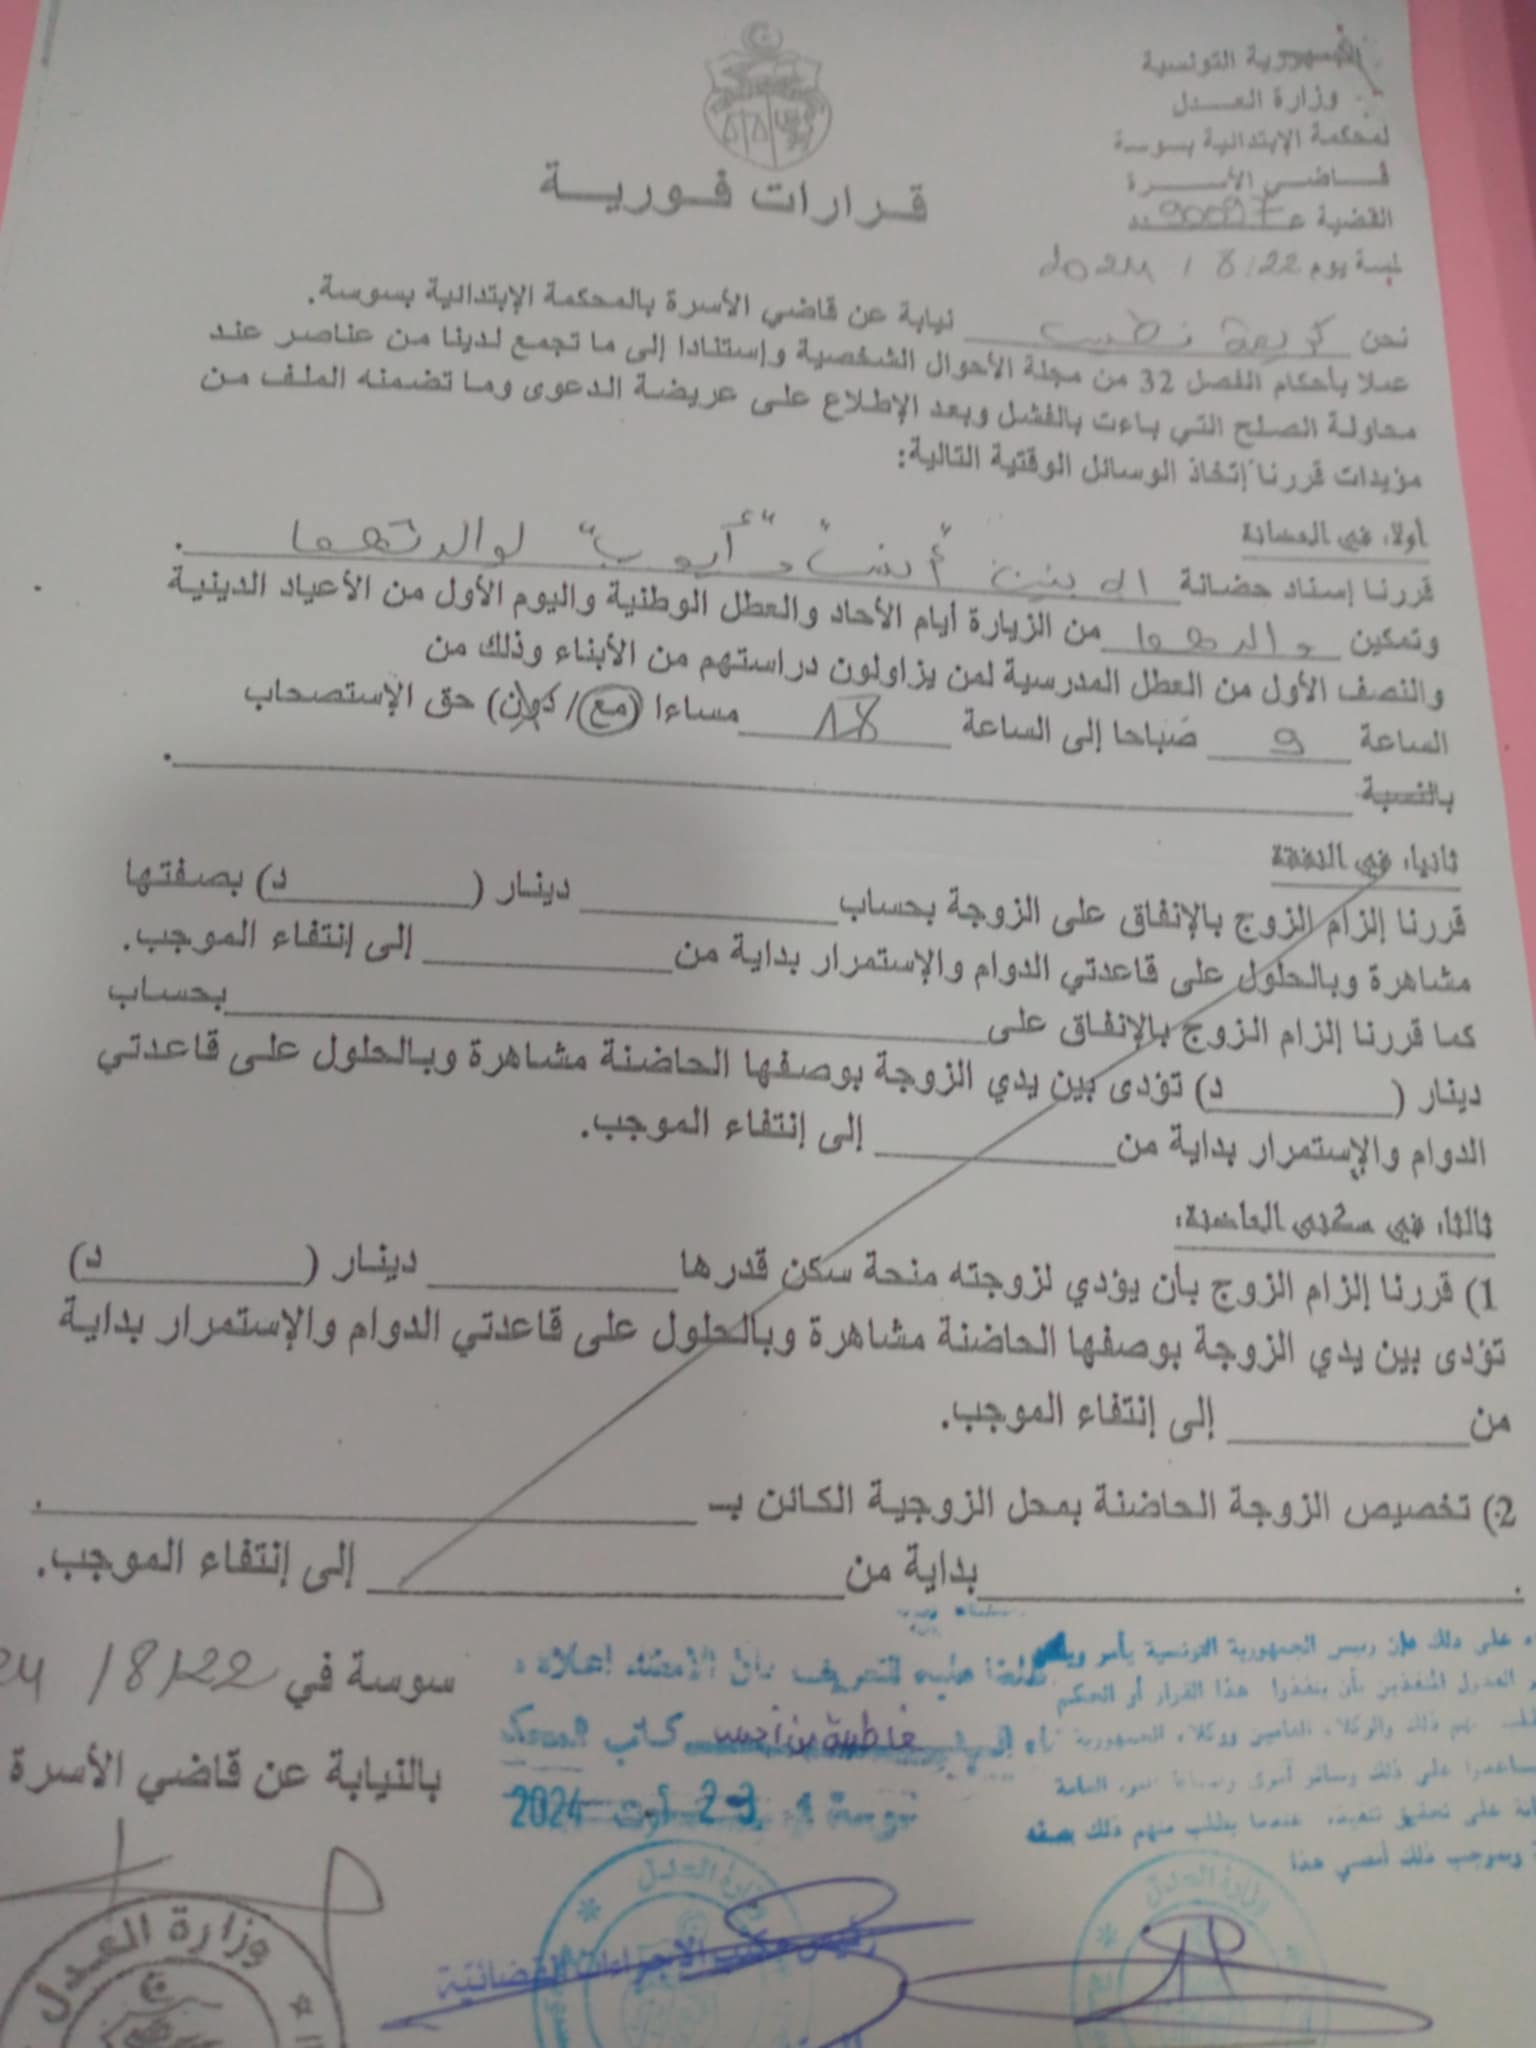 الجمهورية التونسية
وزارة العدل
لمحكمة الإبتدائية بسوسة
قاضي الأسرة
القضية ع 90097 دد
لسة يوم 22/8/2024
قرارات فورية
نحن كريمة نيابة عن قاضي الأسرة بالمحكمة الإبتدائية بسوسة.
عملا بأحكام الفصل 32 من مجلة الأحوال الشخصية وإستنادا إلى ما تجمع لدينا من عناصر عند
محاولة الصلح التي باءت بالفشل وبعد الإطلاع على عريضة الدعوى وما تضمنه الملف من
مؤيدات قررنا إتخاذ الوسائل الوقتية التالية:
أولا، في الحضانة
قررنا إسناد حضانة الابنين "أنس" و "أيوب" لوالدتهما.
وتمكين والدهما من الزيارة أيام الآحاد والعطل الوطنية واليوم الأول من الأعياد الدينية
والنصف الأول من العطل المدرسية لمن يزاولون دراستهم من الأبناء وذلك من
الساعة 9 صباحا إلى الساعة 18 مساءا (مع/ دون) حق الإستصحاب
بالنسبة .
ثانيا، في النفقة
قررنا إلزام الزوج بالإنفاق على الزوجة بحساب دينار ( د) بصفتها
مشاهرة وبالحلول على قاعدتي الدوام والإستمرار بداية من إلى إنتفاء الموجب.
كما قررنا إلزام الزوج بالإنفاق على بحساب
دينار ( د) تؤدى بين يدي الزوجة بوصفها الحاضنة مشاهرة وبالحلول على قاعدتي
الدوام والإستمرار بداية من إلى إنتفاء الموجب.
ثالثا، في سكنى الحاضنة:
1) قررنا إلزام الزوج بأن يؤدي لزوجته منحة سكن قدرها دينار ( د)
تؤدى بين يدي الزوجة بوصفها الحاضنة مشاهرة وبالحلول على قاعدتي الدوام والإستمرار بداية
من إلى إنتفاء الموجب.
2) تخصيص الزوجة الحاضنة بمحل الزوجية الكائن بـ .
. بداية من إلى إنتفاء الموجب.
سوسة في 22/8/24
بالنيابة عن قاضي الأسرة
للتعريف بأن الامضاء اعلاه
فاطمة بن كاتب المحكمة
سوسة 23 أوت 2024
ء على ذلك فإن رئيس الجمهورية التونسية يأمر
العدول المنفذين بأن ينفذوا هذا القرار أو الحكم
ذلك والوكلاء العامين ووكلاء الجمهورية
ساعدوا على ذلك وسائر القوة العامة
على تحقيق تنفيذه عندما يطلب منهم ذلك بصفة
وبموجب ذلك أمضي هذا
وزارة العدل
وزارة العدل
وزارة العدل
رئيس مكتب الإجراءات القضائية